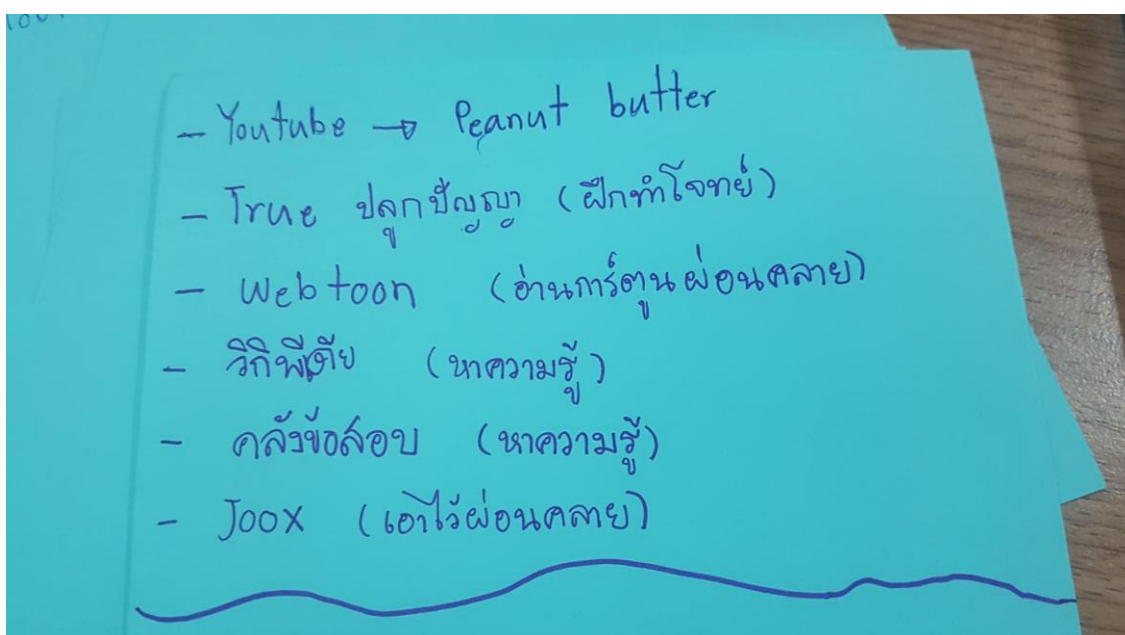 - Youtube → Peanut butter
- True ปลูกปัญญา (ฝึกทำโจทย์)
- Webtoon (อ่านการ์ตูนผ่อนคลาย)
- วิกิพีเดีย (หาความรู้)
- คลังข้อสอบ (หาความรู้)
- Joox (เอาไว้ผ่อนคลาย)